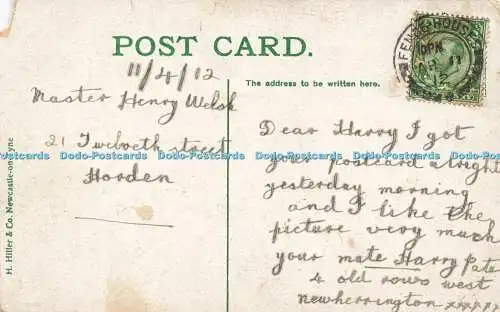 POST CARD.
11/4/12
The address to be written here.
Master Henry Welsh
21 Twelveth street
Horden
Dear Harry I got
your postcard alright
yesterday morning
and I like the
picture very much
your mate Harry Pate
4 old rows west
newherrington xxxxxx
H. Hiller & Co. Newcastle-on-Tyne
FENCE HOUSES
AP 11
12
Dodo-Postcards Dodo-Postcards Dodo-Postcards Dodo-Postcards Dodo-Postcards Dodo-Postcards